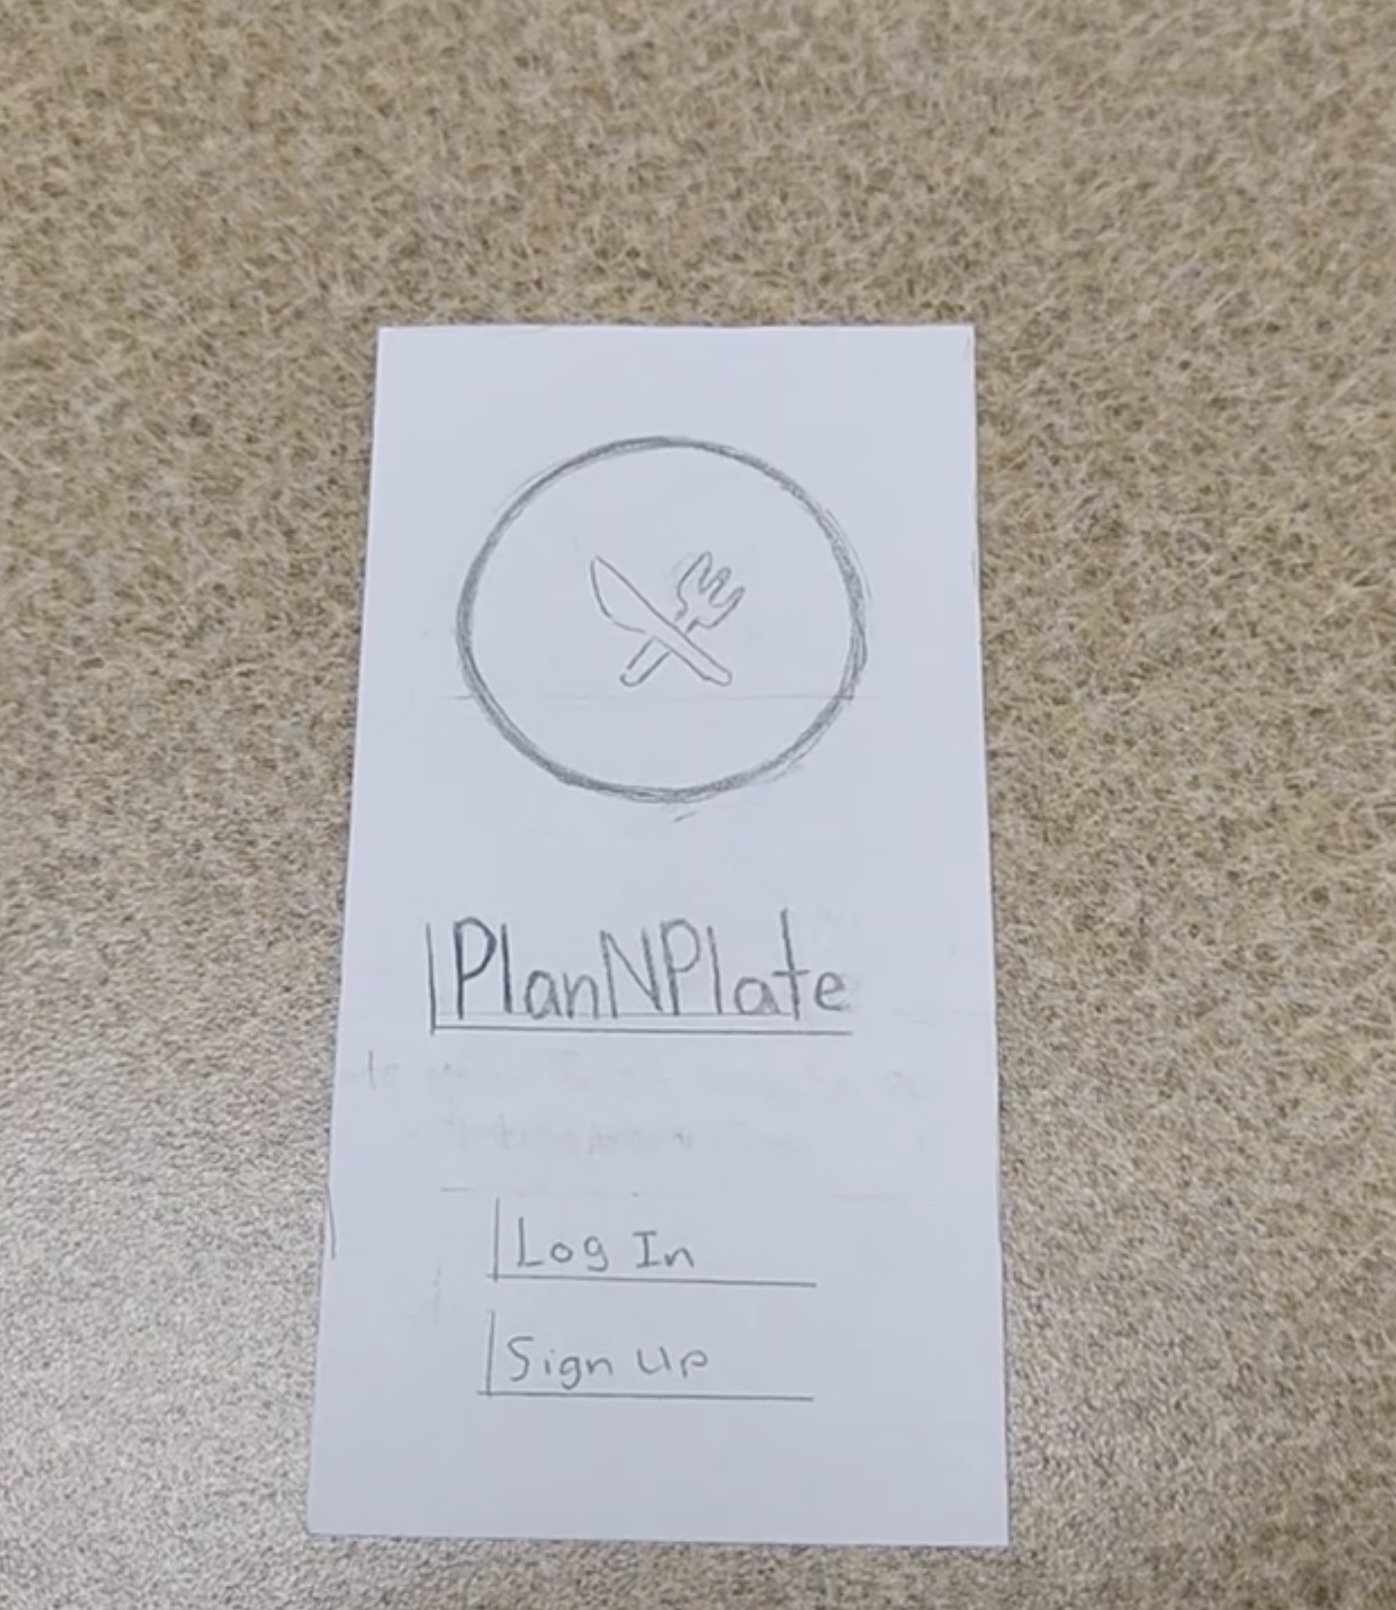 PlanNPlate
Log In
Sign Up